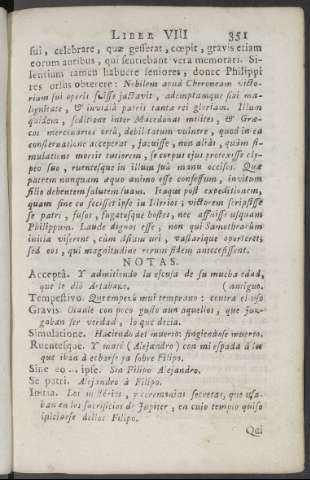 LIBER VIII 351
sui, celebrare, quæ gesserat, cœpit, gravis etiam
eorum auribus, qui sentiebant vera memorari. Si-
lentium tamen habuere seniores, donec Philippi
res orsus obterere: Nobilem apud Cheroneam victo-
riam sui operis fuisse jactavit, ademptamque sibi ma-
lignitate, & invidiâ patris tanta rei gloriam. Illum
quidem, seditione inter Macedonas milites, & Græ-
cos mercenarios ortâ, debilitatum vulnere, quod in ea
consternatione acceperat, jacuisse, non aliàs, quàm si-
mulatione mortis tutiorem, se corpus ejus protexisse cly-
peo suo, ruentesque in illum suâ manu occisos. Quæ
patrem nunquam æquo animo esse confessum, invitum
filio debentem salutem suam. Itaque post expeditionem,
quam sine eo fecisset ipse in Illirios, victorem scripsisse
se patri, fusos, fugatosque hostes, nec affuisse usquam
Philippum. Laude dignos esse, non qui Samothracûm
initia viserent, cùm Asiam uri, vastarique oporteret;
sed eos, qui magnitudine rerum fidem antecessissent.
NOTAS.
Acceptâ. Y admitiendo la escusa de su mucha edad,
que le diò Artabazo. (antiguo.
Tempestivo. Que empezò mui temprano: contra el uso
Gravis. Oianle con poco gusto aun aquellos, que juz-
gaban ser verdad, lo que decia.
Simulatione. Haciendo del muerto: fingiendose muerto.
Ruentesque. Y matè (Alejandro) con mi espada à los
que iban à echarse yà sobre Filipo.
Sine eo... ipse. Sin Filipo Alejandro.
Se patri. Alejandro à Filipo.
Initia. Los misterios, y ceremonias secretas, que usa-
ban en los sacrificios de Jupiter, en cuio templo quiso
iniciarse dellos Filipo.
Qui